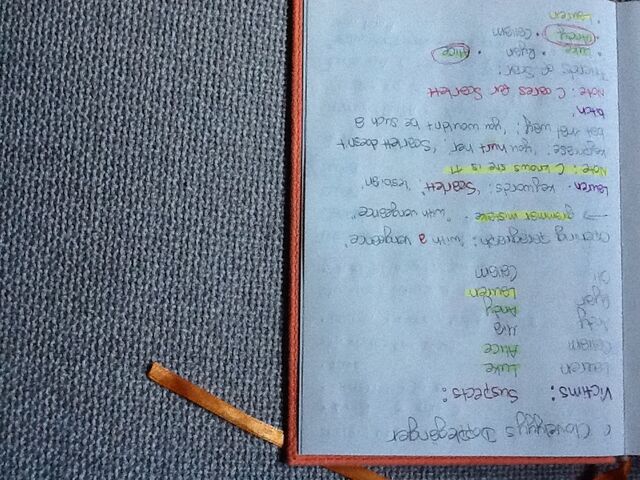 Doppleganger
Victims: Suspects:
Lauren Luke
Callum Alice
Andy
Ryan Lauren
Oli Callum
Opening paragraph: "with a vengeance"
→ grammar mistake - "with vengeance"
Lauren - keywords: "Scarlett" "lesbian"
Note: C knows she is
keyphrase: "you hurt her", "Scarlett doesn't
bat that way", "you wouldn't be such a
bitch"
Note: C cares for Scarlett
Friends of Star:
• Luke • Ryan • Alice
• Andy • Callum
• Lauren